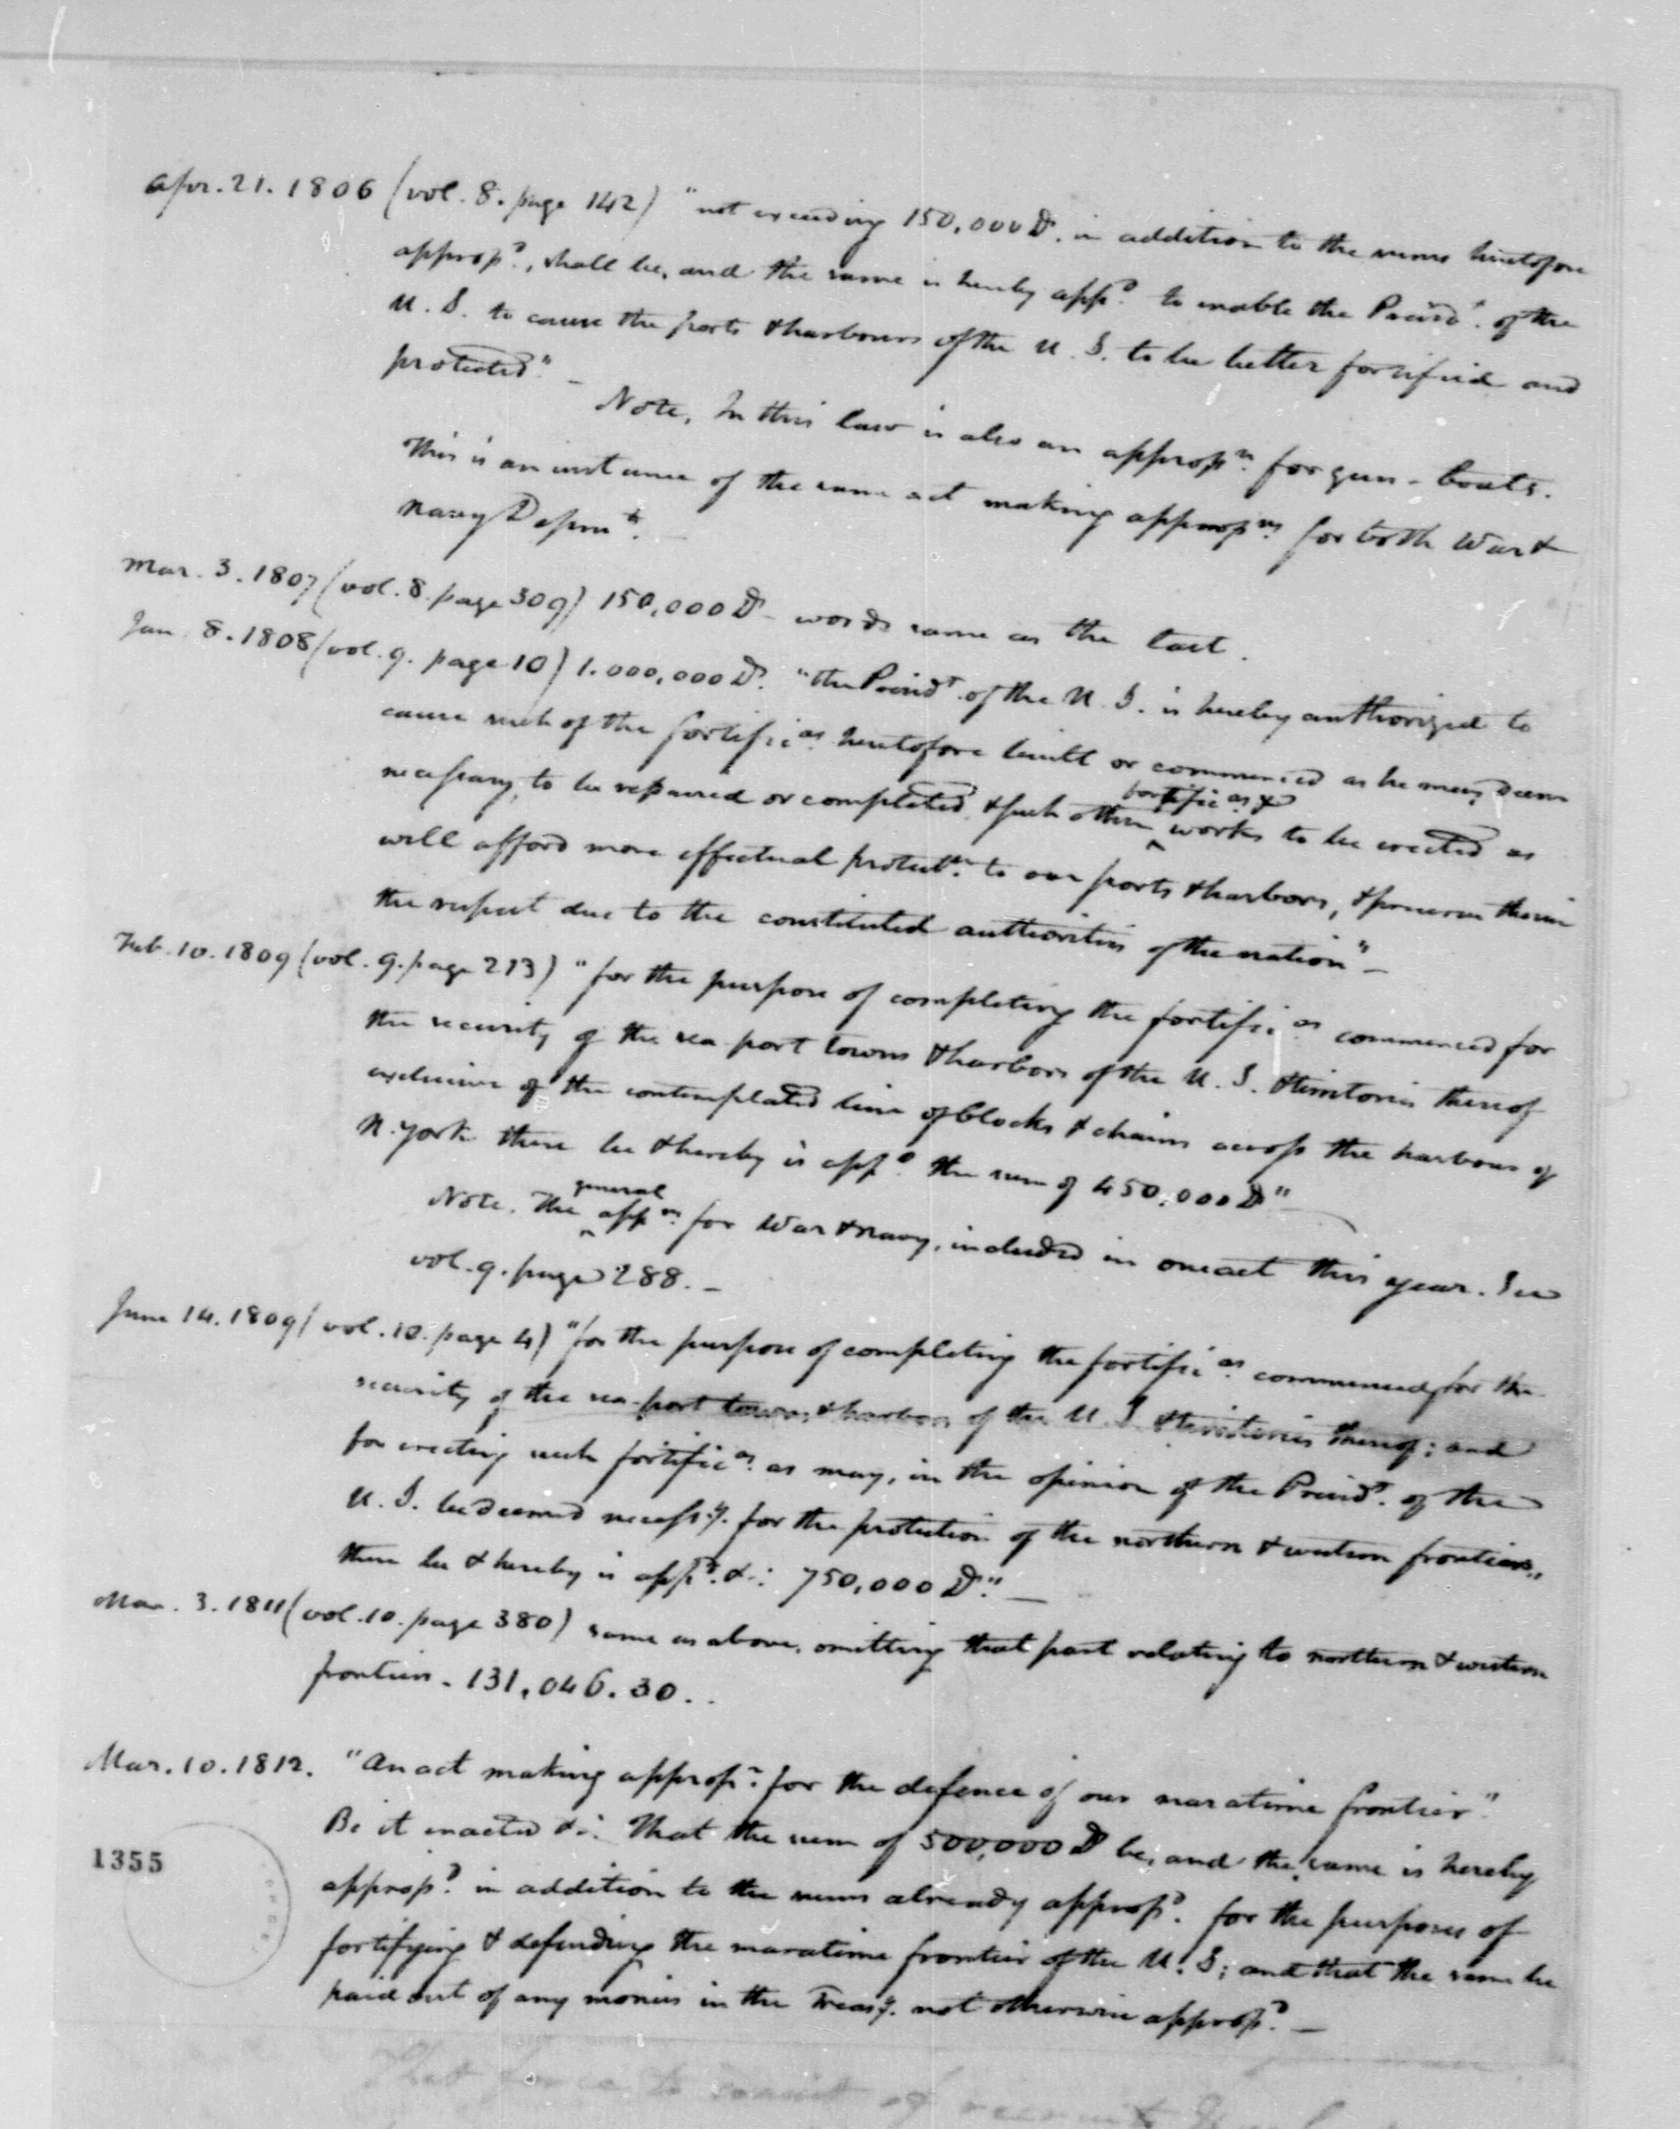 Apr. 21. 1806 (vol. 8. page 142) "not exceeding 150,000 D. in addition to the sums heretofore
approp.d, shall be, and the same is hereby app.d to enable the Presid.t of the
U. S. to cause the ports & harbours of the U. S. to be better fortified and
protected." –
Note, In this law is also an approp.n for gun-boats.
This is an instance of the same act making approp.ns for both War &
Navy Deprm.ts. –
Mar. 3. 1807 (vol. 8. page 309) 150,000 D – words same as the last.
Jan. 8. 1808 (vol. 9. page 10) 1.000,000 D. "the Presid.t of the U. S. is hereby authorized to
cause such of the fortific.as heretofore built or commenced as he may deem
necessary, to be repaired or completed, & such other fortific.as & works to be erected as
will afford more effectual protect.n to our ports & harbors, & preserve therein
the respect due to the constituted authorities of the nation" –
Feb. 10. 1809 (vol. 9. page 213) "for the purpose of completing the fortific.as commenced for
the security of the sea port towns & harbors of the U. S. & territories thereof
exclusive of the contemplated line of blocks & chains across the harbour of
N. York there be & hereby is app.d the sum of 450,000 D" –
Note. The general app.ns for War & Navy, included in one act this year. See
vol. 9. page 288. –
June 14. 1809 (vol. 10. page 4) "for the purpose of completing the fortific.as commenced for the
security of the sea-port towns & harbors of the U. S. & territories thereof; and
for erecting such fortific.as as may, in the opinion of the Presid.t of the
U. S. be deemed necess.y for the protection of the northern & western frontiers,
there be & hereby is app.d &c: 750,000 D." –
Mar. 3. 1811 (vol. 10. page 380) same as above, omitting that part relating to northern & western
frontiers. 131,046.30..
Mar. 10. 1812. "An act making approp.n for the defence of our maratime frontier"
Be it enacted &c: That the sum of 500,000 D be, and the same is hereby
approp.d in addition to the sums already approp.d for the purposes of
fortifying & defending the maratime frontier of the U. S; and that the same be
paid out of any monies in the Treas.y not otherwise approp.d –
1355